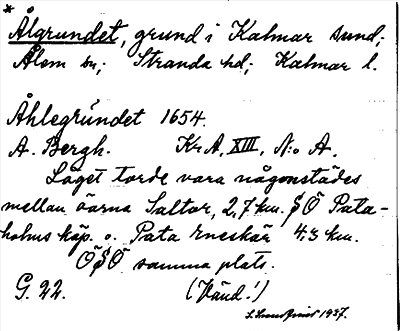 *
Ålgrundet, grund i Kalmar sund;
Ålem sn; Stranda hd; Kalmar l.
Åhlegrundet 1654.
A. Bergh. Kr A, XIII, N:o A.
Läget torde vara någonstädes
mellan öarna Saltor, 2,7 km. SÖ Pata-
holms köp. o. Pata Eneskär 4,3 km.
ÖSÖ samma plats.
G. 22. (Vänd!)
1937.